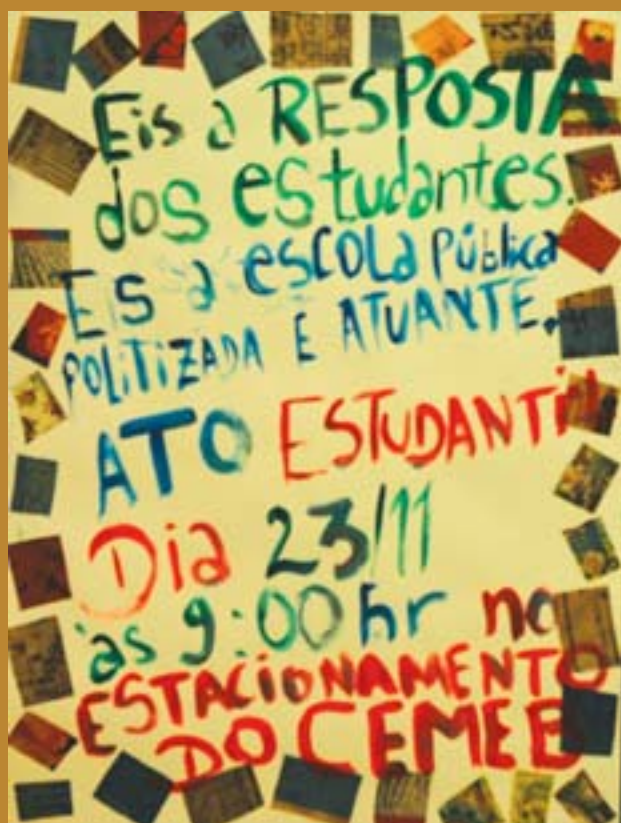 Eis a RESPOSTA
dos estudantes.
EIS a escola Pública
POLITIZADA E ATUANTE.
ATO ESTUDANTil
Dia 23/11
às 9:00 hr no
ESTACIONAMENTO
DO CEMEB